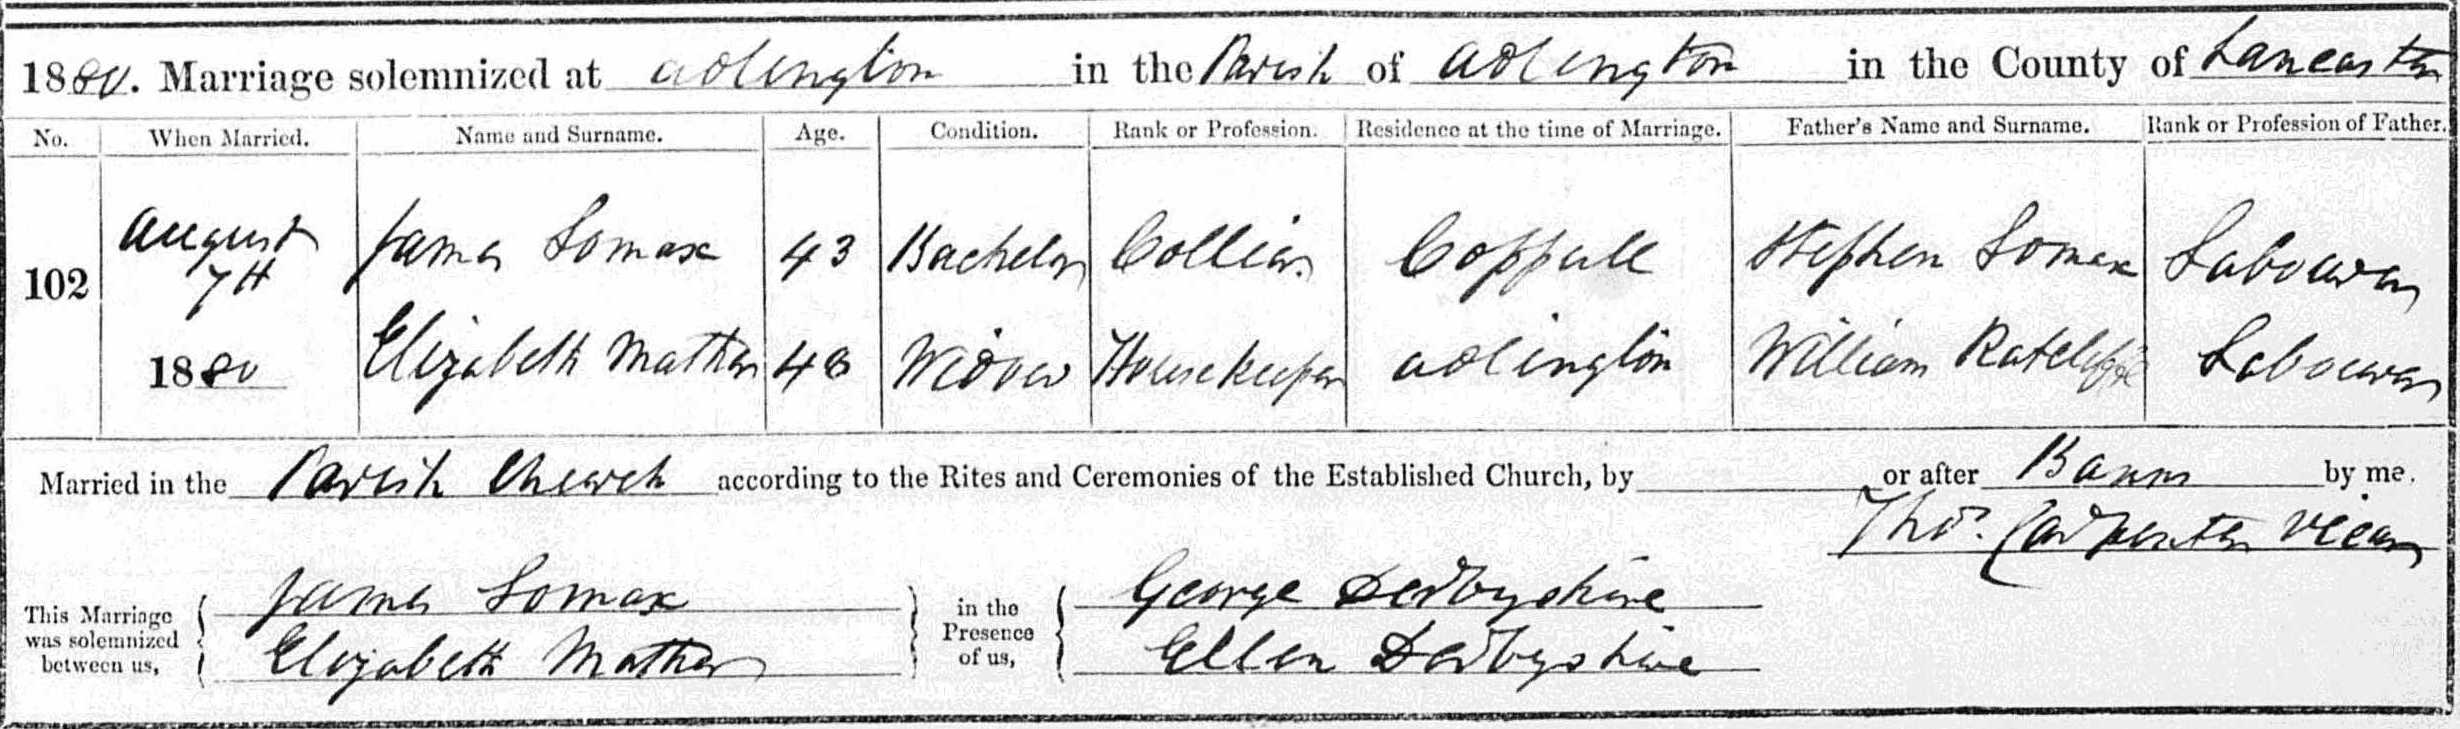 1880. Marriage solemnized at Adlington in the Parish of Adlington in the County of Lancaster
No. When Married. Name and Surname. Age. Condition. Rank or Profession. Residence at the time of Marriage. Father's Name and Surname. Rank or Profession of Father.
102 August 7th 1880 James Lomax 43 Bachelor Collier Coppull Stephen Lomax Labourer
Elizabeth Mather 48 Widow Housekeeper Adlington William Ratcliffe Labourer
Married in the Parish Church according to the Rites and Ceremonies of the Established Church, by or after Banns by me.
Thos. Carpenter Vicar
This Marriage was solemnized between us, James Lomax Elizabeth Mather in the Presence of us, George Derbyshire Ellen Derbyshire